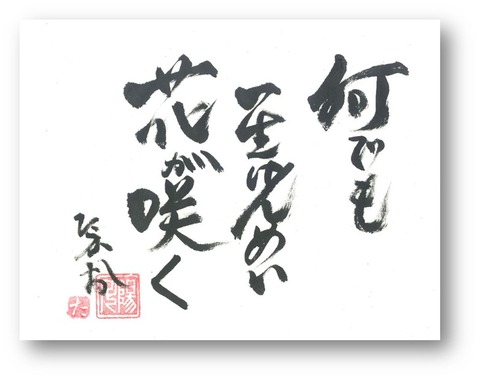 何でも
一生けんめい
花が咲く